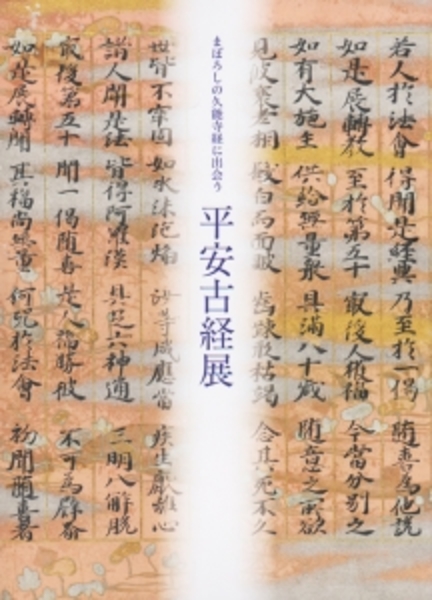 若人於法會 得聞是経典 乃至於一偈 随喜為他説
如是展轉教 至於第五十 最後人獲福 今當分別之
如有大施主 供給無量衆 具滿八十歳 随意之所欲
見彼衰老相 髪白而面皺 齒踈形枯竭 念其死不久
まぼろしの久能寺経に出会う
平安古経展
世皆不牢固 如水沫泡焔 汝等咸應當 疾生厭離心
諸人聞是法 皆得阿羅漢 具足六神通 三明八解脱
最後第五十 聞一偈随喜 是人福勝彼 不可為譬喩
如是展轉聞 其福尚無量 何況於法會 初聞随喜者